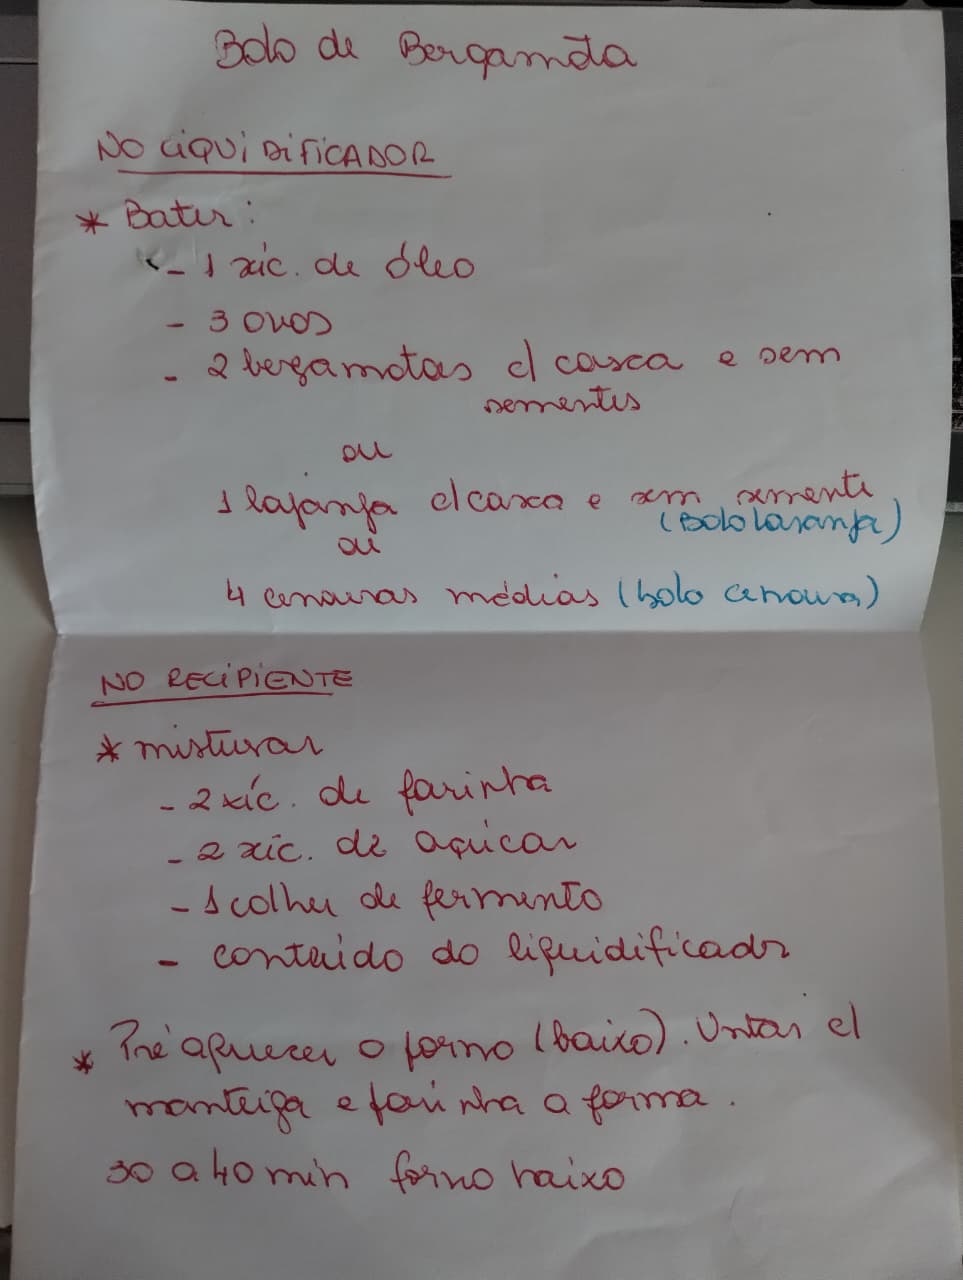 Bolo de Bergamota
NO LIQUIDIFICADOR
* Bater:
- 1 xíc. de óleo
- 3 ovos
- 2 bergamotas c/ casca e sem
sementes
ou
1 laranja c/ casca e sem semente
(Bolo Laranja)
ou
4 cenouras médias (bolo cenoura)
NO RECIPIENTE
* misturar
- 2 xíc. de farinha
- 2 xíc. de açúcar
- 1 colher de fermento
- conteúdo do liquidificador
* Pré aquecer o forno (baixo). Untar c/
manteiga e farinha a forma.
30 a 40 min forno baixo